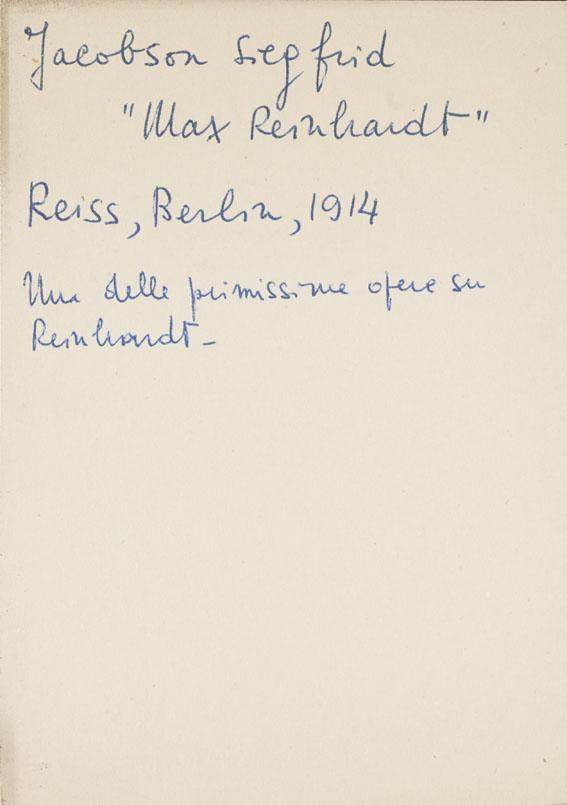 Jacobson Siegfrid
"Max Reinhardt"
Reiss, Berlin, 1914
Una delle primissime opere su
Reinhardt -